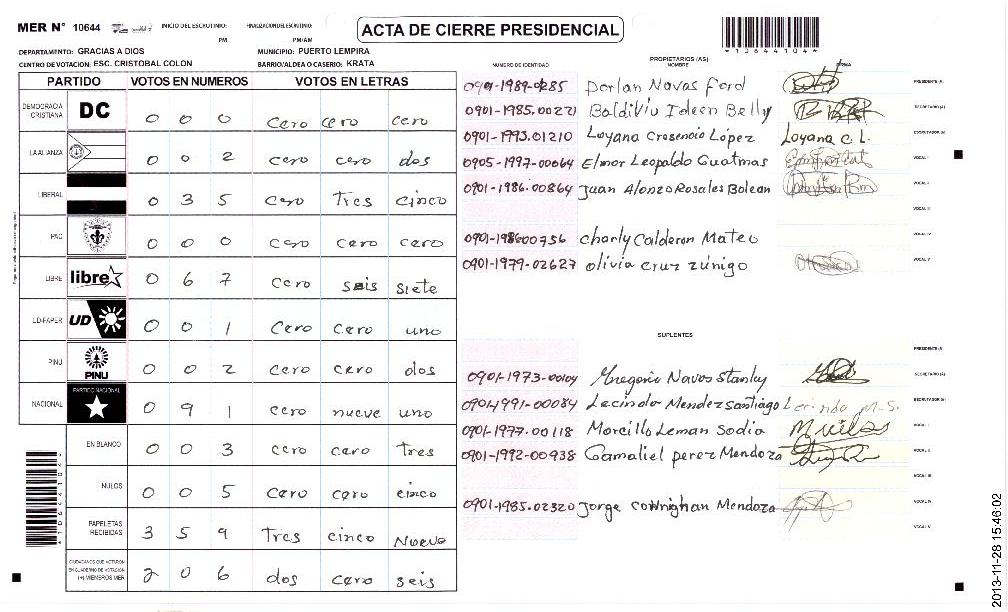 MER N° 10644 INICIO DEL ESCRUTINIO: FINALIZACION DEL ESCRUTINIO:
PM PM/AM
ACTA DE CIERRE PRESIDENCIAL
*10644104*
DEPARTAMENTO: GRACIAS A DIOS MUNICIPIO: PUERTO LEMPIRA
CENTRO DE VOTACION: ESC. CRISTOBAL COLON BARRIO/ALDEA O CASERIO: KRATA
PARTIDO VOTOS EN NUMEROS VOTOS EN LETRAS
DEMOCRACIA CRISTIANA DC 0 0 0 cero cero cero
LA ALIANZA 0 0 2 cero cero dos
LIBERAL 0 3 5 cero Tres cinco
PAC 0 0 0 cero cero cero
LIBRE libre 0 6 7 cero seis siete
UD-FAPER UD 0 0 1 cero cero uno
PINU PINU 0 0 2 cero cero dos
NACIONAL PARTIDO NACIONAL 0 9 1 cero nueve uno
EN BLANCO 0 0 3 cero cero tres
NULOS 0 0 5 cero cero cinco
PAPELETAS RECIBIDAS 3 5 9 Tres cinco Nueve
CIUDADANOS QUE VOTARON EN CUADERNO DE VOTACION (+) MIEMBROS MER 2 0 6 dos cero seis
PROPIETARIOS (AS)
NUMERO DE IDENTIDAD NOMBRE FIRMA
Dorlan Navas Ford PRESIDENTE (A)
0901-1985.00221 SECRETARIO (A)
0901-1993.01210 Loyana Cresencio López Loyana C. L. ESCRUTADOR (A)
0905-1997-00064 Elmor Leopoldo Guatmas VOCAL I
0901-1986.00864 Juan Alonzo Rosales Bolean VOCAL II
VOCAL III
0901-198600756 charly Calderon Mateo VOCAL IV
0901-1979-02627 olivia cruz zúnigo VOCAL V
SUPLENTES
PRESIDENTE (A)
0901-1973-00104 Gregorio Navas Stanley SECRETARIO (A)
09011991-00084 Lecindo Mendez Santiago ESCRUTADOR (A)
0901-1977-00118 Morcillo Leman Sodia VOCAL I
0901-1992-00938 Gamaliel perez Mendoza VOCAL II
VOCAL III
0901-1985.02320 Jorge Mendoza VOCAL IV
VOCAL V
2013-11-28 15:46:02